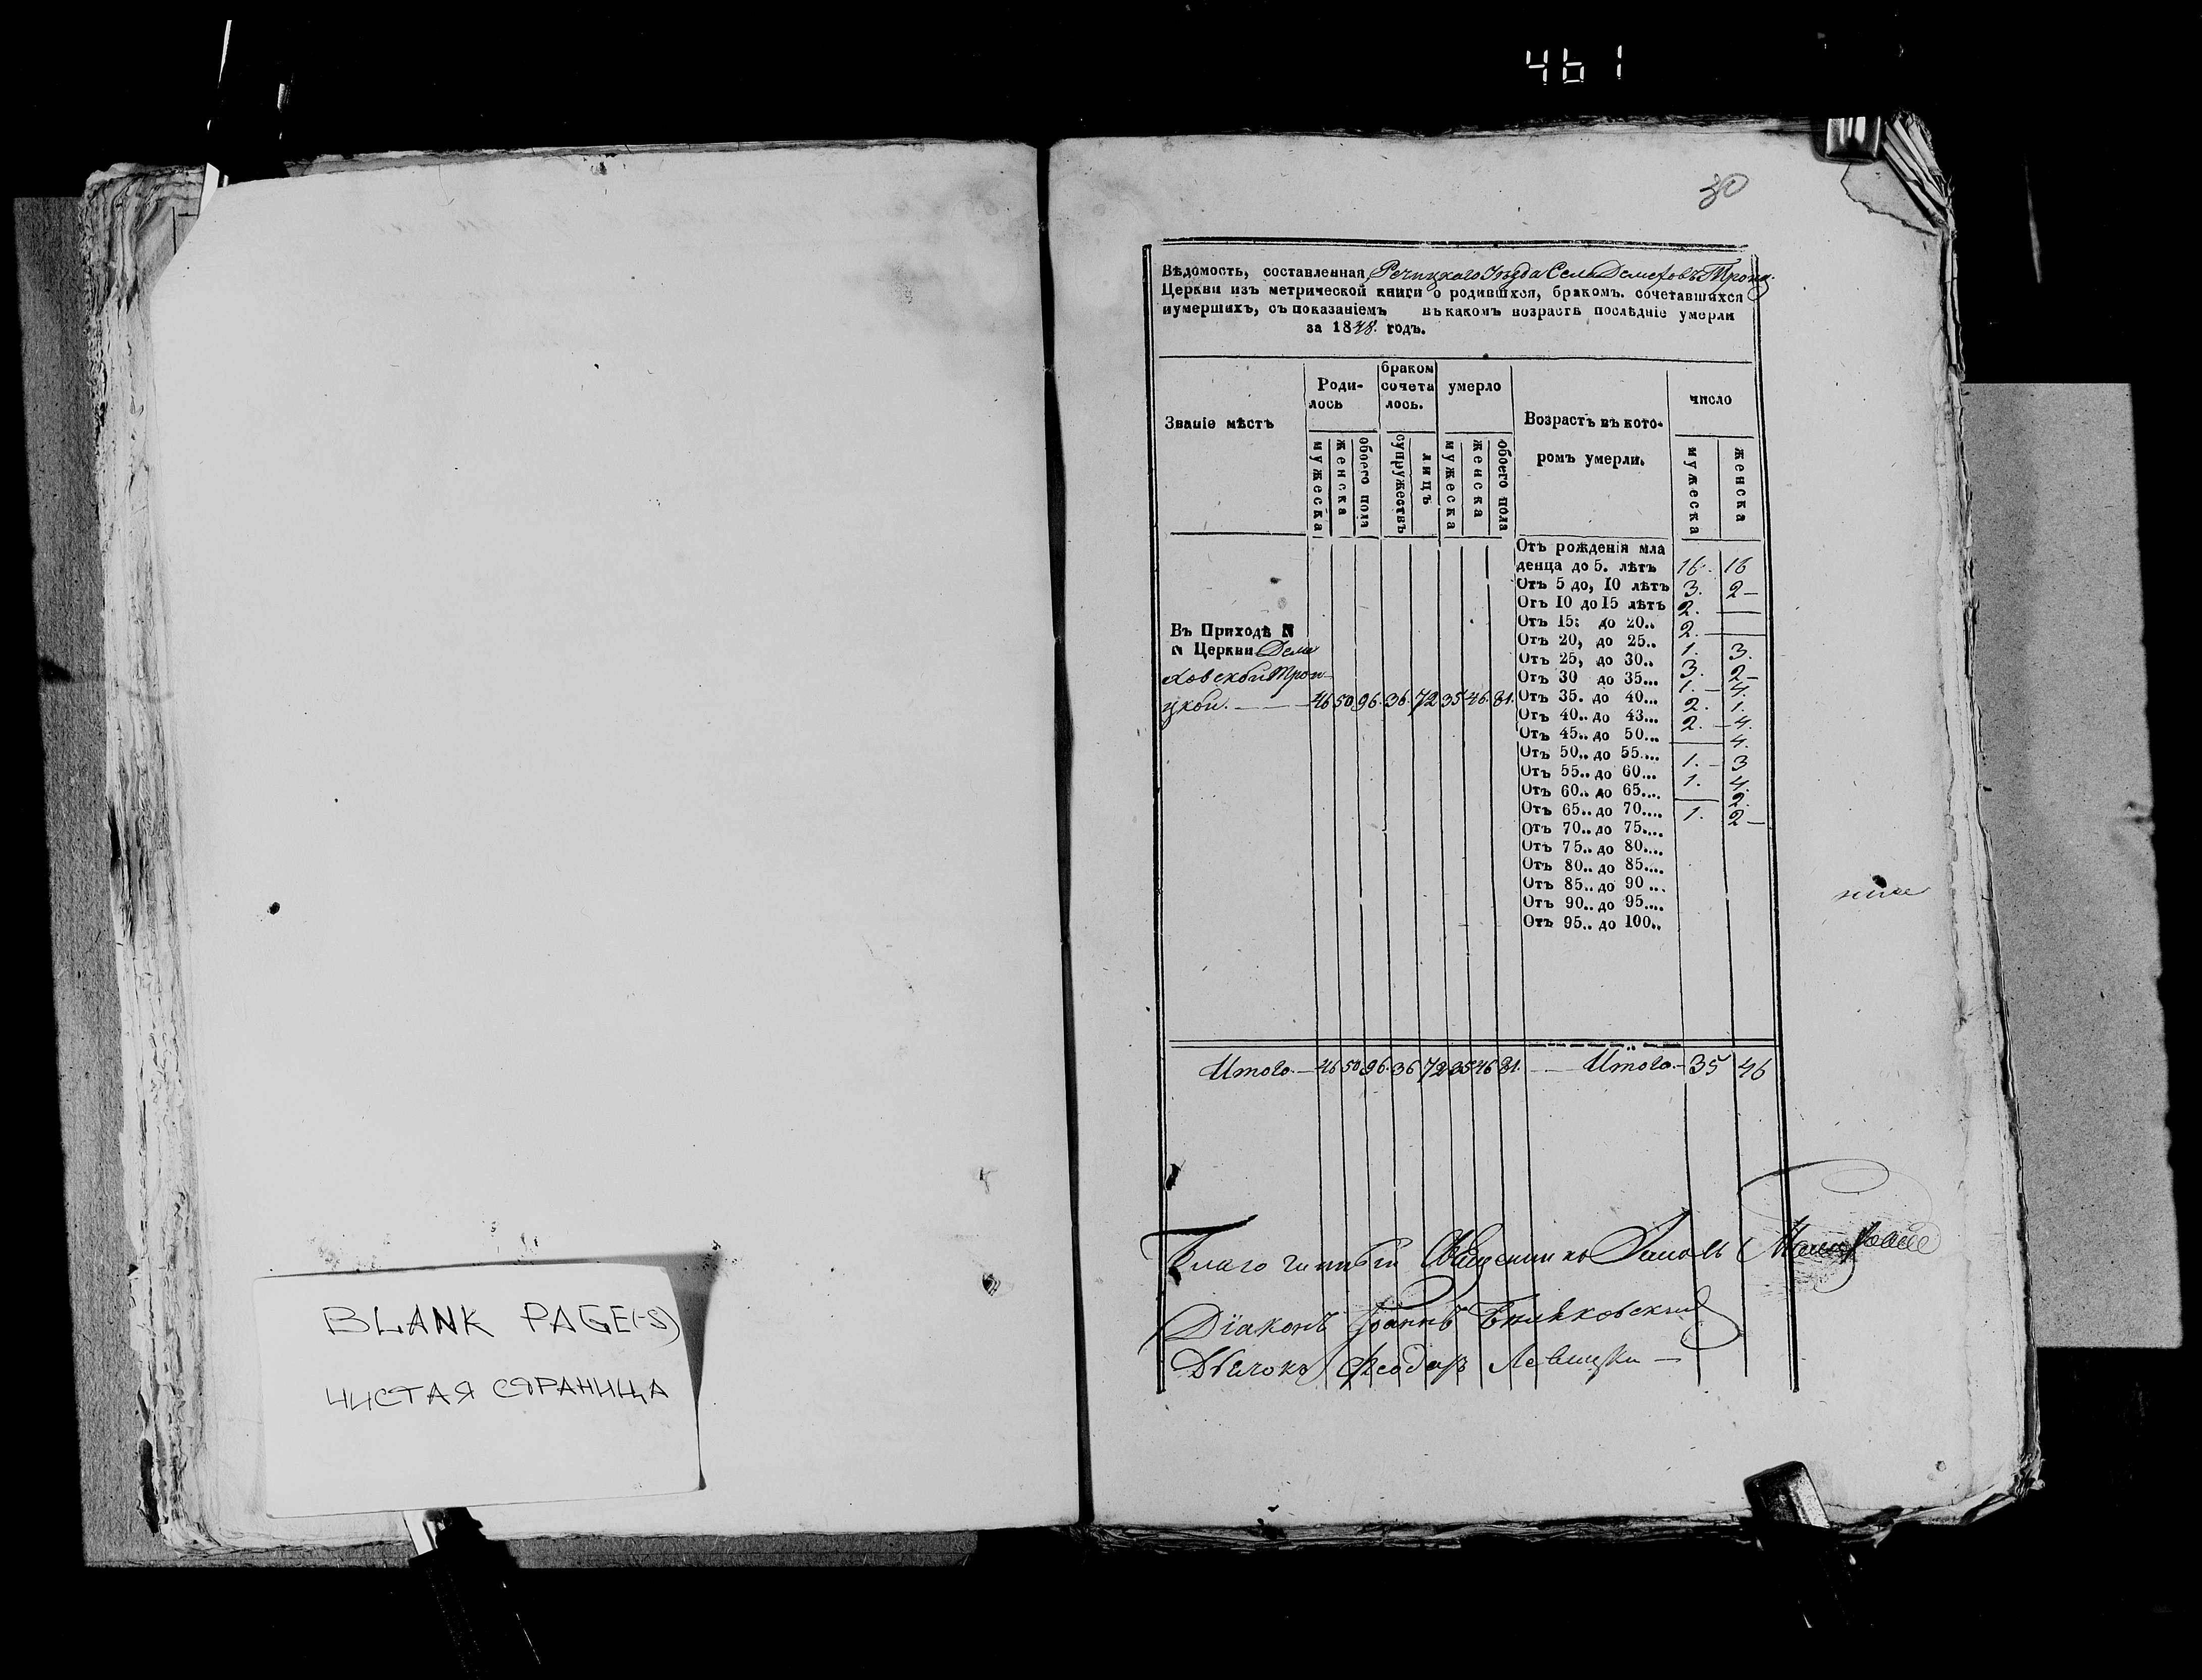 461
30
BLANK PAGE(-S)
ЧИСТАЯ СТРАНИЦА
Вѣдомость, составленная Речицкаго Уѣзда Села Демеховъ Троиц.
Церкви изъ метрической книги о родившхся, бракомъ. сочетавшихся
иумершихъ, съ показаніемъ въ какомъ возрастѣ послѣдніе умерли
за 1848. годъ.
Званіе мѣстъ
Роди-
лось
браком
сочета
лось.
умерло
Возрастъ въ кото-
ромъ умерли.
число
мужеска
женска
обоего пола
супружествъ
лицъ
мужеска
женска
обоего пола
мужеска
женска
Отъ рожденія мла
денца до 5. лѣтъ 16. 16
Отъ 5 до, 10 лѣтъ 3. 2—
Отъ 10 до 15 лѣтъ 2. —
Отъ 15: до 20.. 2. —
Отъ 20, до 25.. 1. 3.
Отъ 25, до 30.. 3. 2—
Отъ 30 до 35... 1.— 4.
Отъ 35. до 40... 2. 1.
Отъ 40.. до 43... 2. —4.
Отъ 45.. до 50... — 4.
Отъ 50.. до 55.... 1.— 3
Отъ 55.. до 60... 1. 4.
Отъ 60.. до 65.... — 2.
Отъ 65.. до 70.... 1. 2—
Отъ 70.. до 75....
Отъ 75.. до 80....
Отъ 80.. до 85....
Отъ 85.. до 90 ...
Отъ 90.. до 95....
Отъ 95.. до 100..
Въ Приходѣ N
N Церкви Деме
ховской Трои
цкой. — — 46 50 96. 36. 72 35 46. 81.
Итого. — 46 50 96. 36 72 35 46 81. — Итого. — 35 46
Благочинный Священникъ
Діаконъ Іоаннъ
Дьячокъ Феодоръ Левицкій —